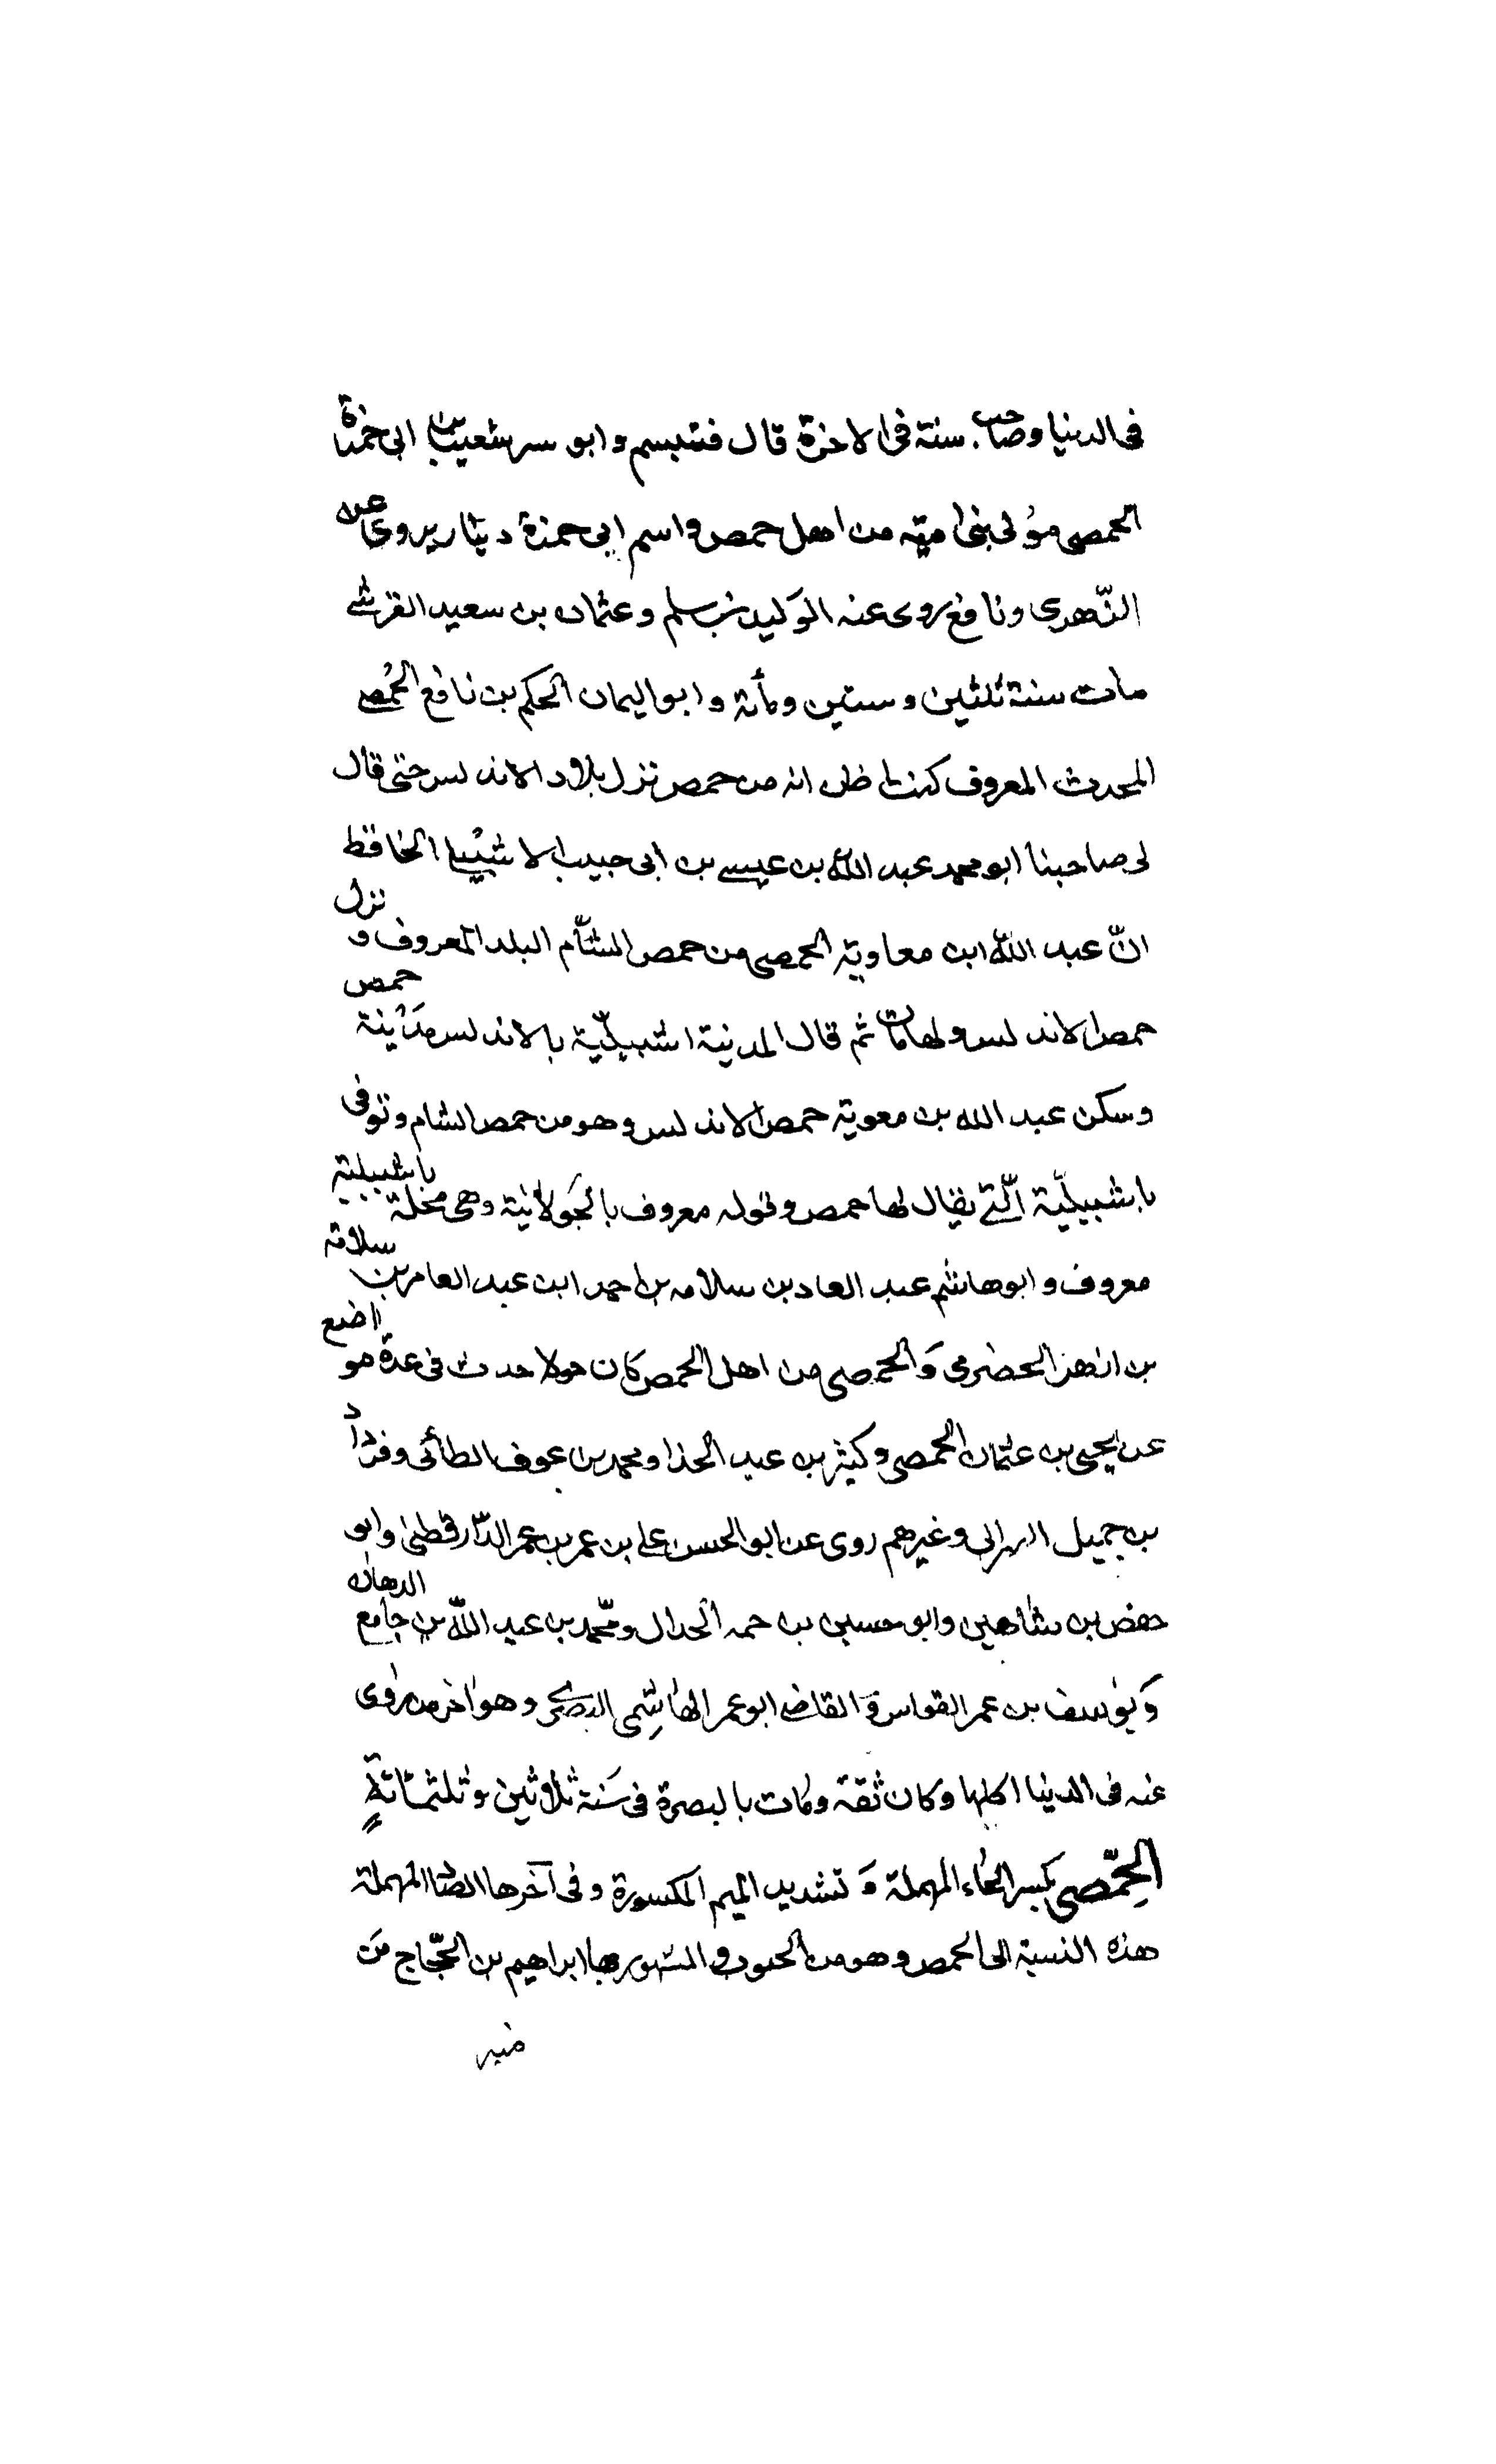 في الدنيا وصاحب سنة في الاخرة قال فتبسم وابو سر شعيب بن ابى حمزة
الحمصى مؤلى بنى امية من اهل حمص واسم ابى حمزة دينار يروى عن
الزّهرى ونافع روى عنه الوليد بن مسلم وعثمان بن سعيد القرشي
مات سنة ثلثين وستين ومأئة وابو اليمان الحكم بن نافع الحمصي
المحدث المعروف كنت اظن انه من حمص نزل بلاد الاندلس حتى قال
لى صاحبنا ابو محمد عبد الله بن عيسى بن ابى حبيب الاشبيلي الحافظ
انّ عبد الله ابن معاوية الحمصى من حمص الشأم البلد المعروف و نزل
حمص الاندلس ولها مات ثم قال المدينة اشبيليّة بالاندلس مدينة حمص
وسكن عبد الله بن معوية حمص الاندلس وهو من حمص الشام وتوفى
باشبيليّة الّتي يقال لها حمص وقوله معروف بالجولانية وهى محلة باشبيلية
معروف وابو هاشم عبد العاد بن سلامه بن احمد ابن عبد العامر بن سلامة
بن ازهر الحضرمى والحمصى من اهل الحمص كان مولا حدث فى عدة مواضع
عن يحيى بن عثمان الحمصى وكثير بن عبد الحذا ومحمد بن عوف الطائى وفرداد
بن جميل وغيرهم روى عن ابو الحسن على بن عمر بن عمر الدّارقطنى وابو
حفض بن شاهين وابو حسين بن حمه الحدال ومحّمد بن عبد الله بن جامع الدهان
ويوسف بن عمر القواس و القاضى ابو عمر الهاشمى البصرى وهو اخر من روى
عنه فى الدنيا اكلها وكان ثقة ومات بالبصرة فى سنة ثلاثين وثلثمائة
الحِمّصى بكسر الحاء المهملة وتشديد الميم المكسورة وفى آخرها الصاد المهملة
هذه النسبة الى الحمص وهو من الحبوب والمشهور بها ابراهيم بن الحجّاج من